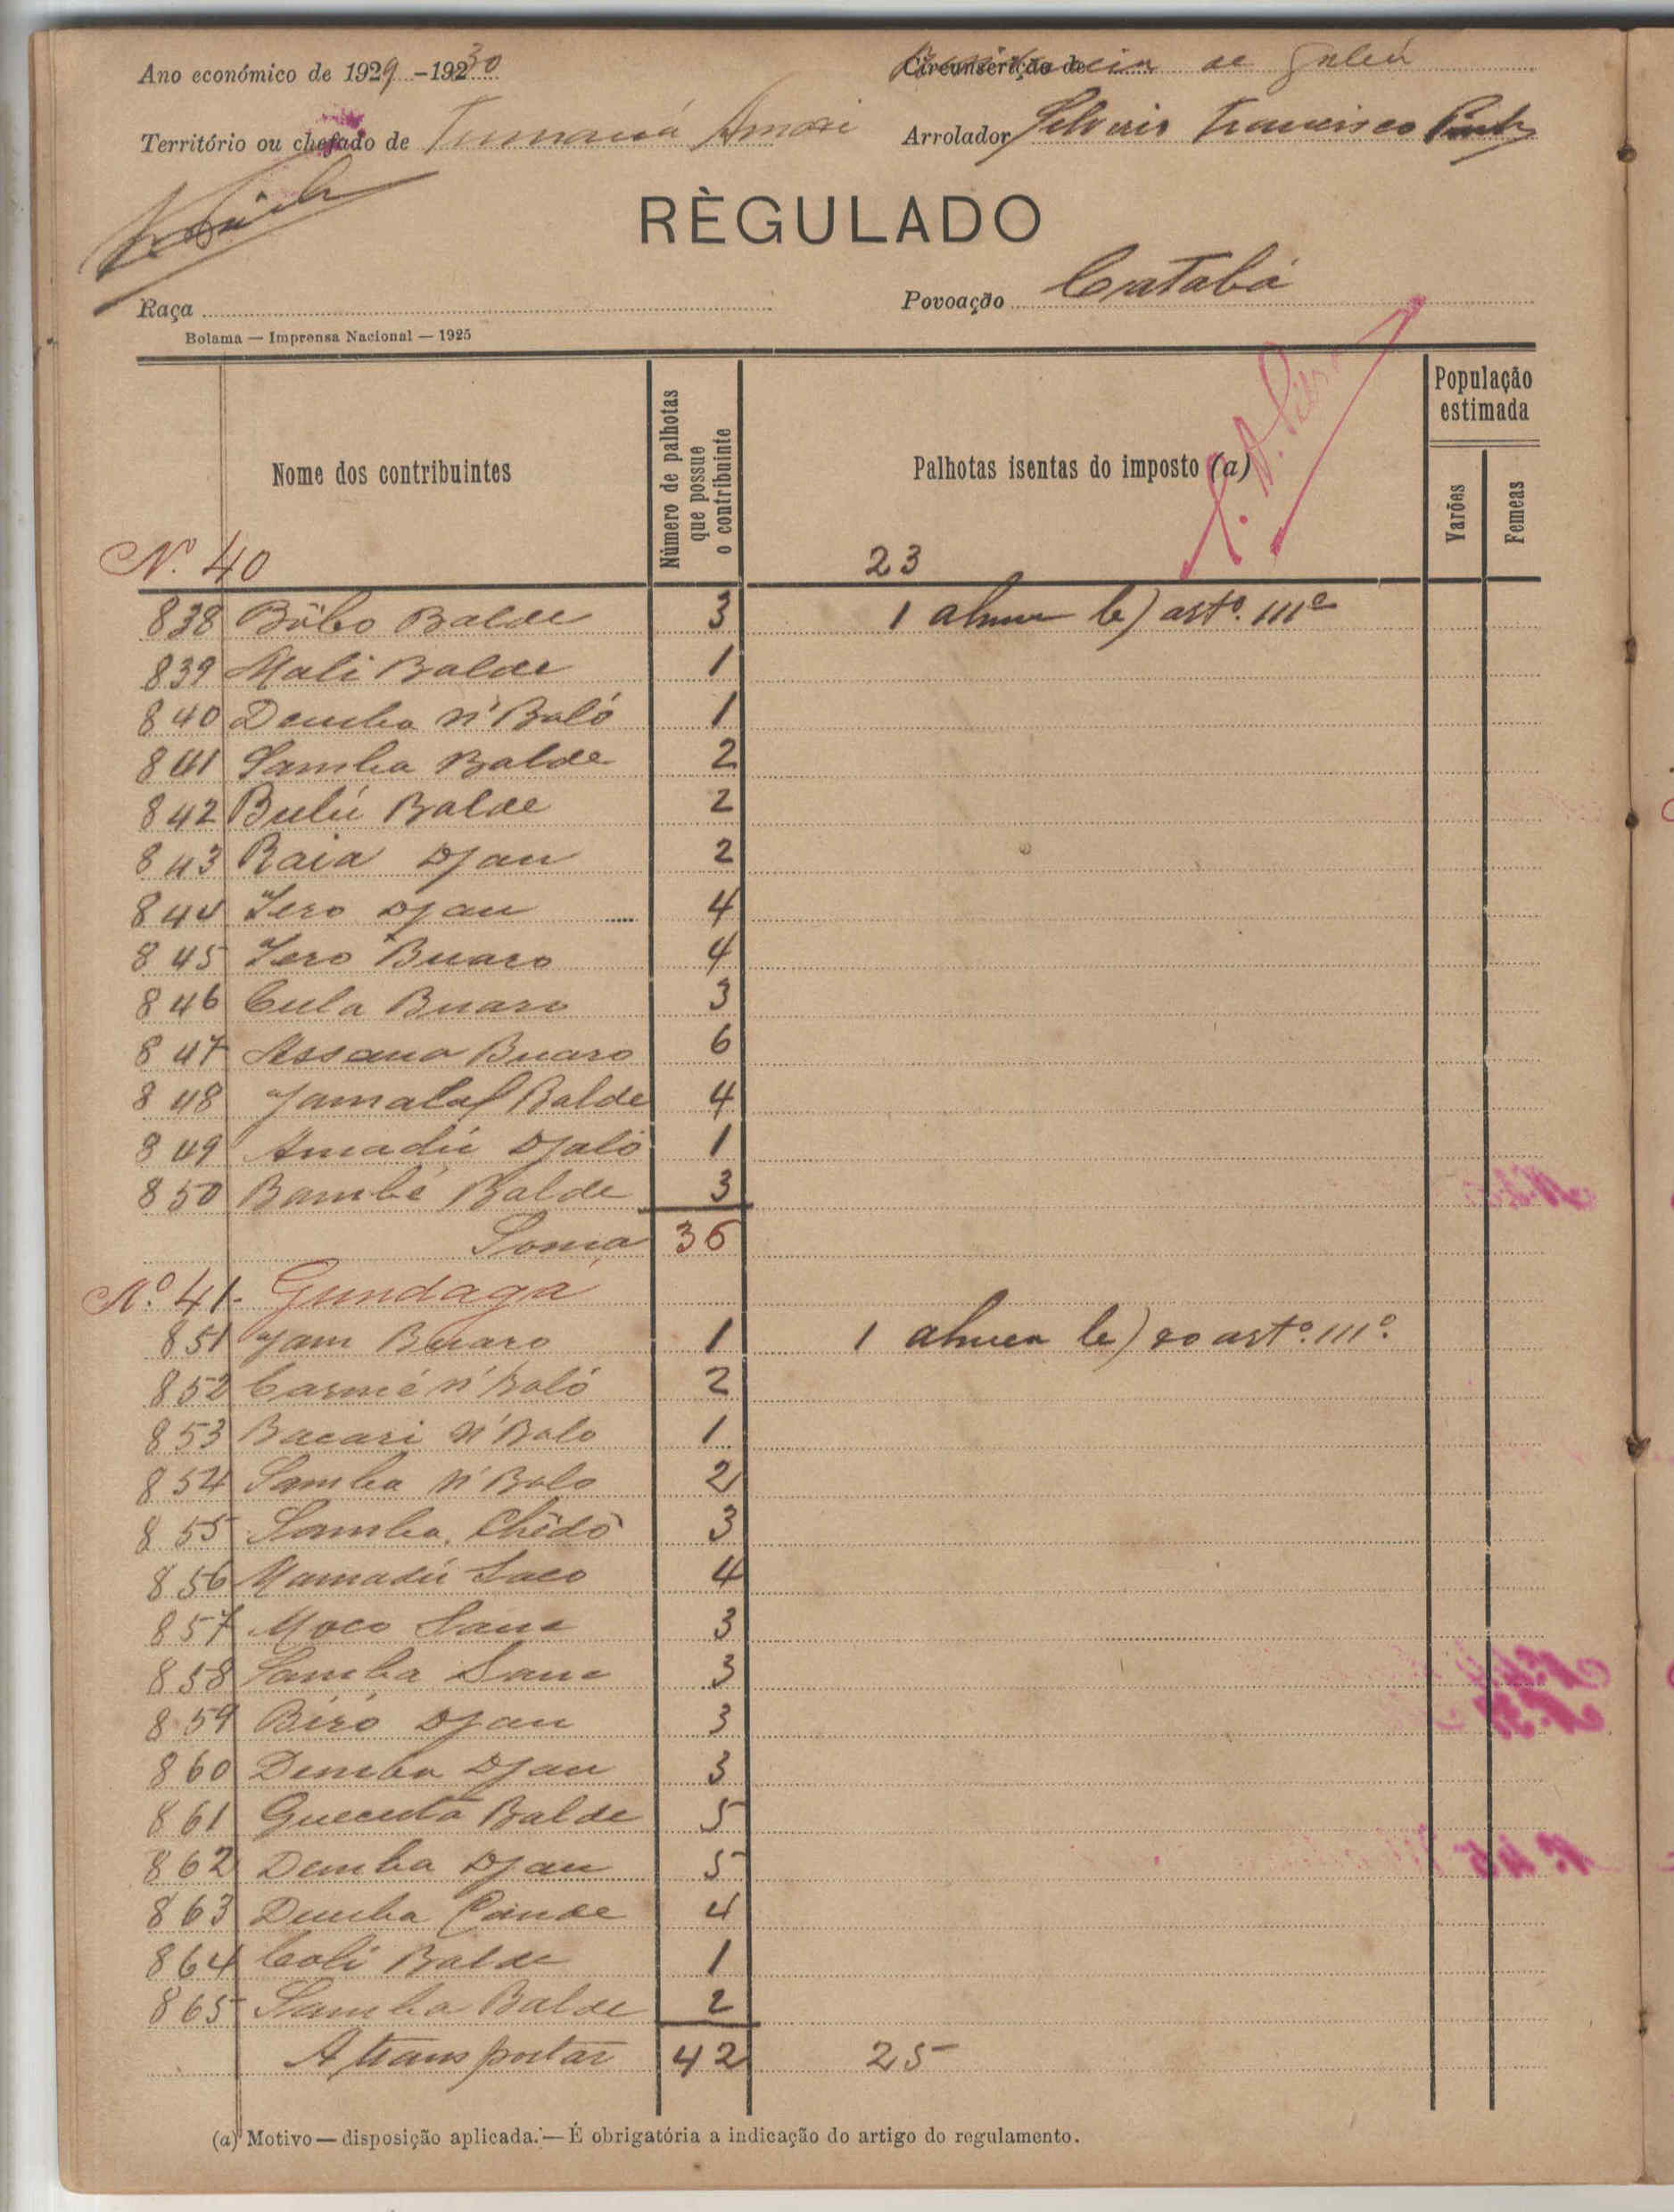 Ano económico de 1929-1930
Circunscrição de
de
Território ou chefado de Tumaná
Arrolador Francisco
RÈGULADO
Raça
Povoação Catabá
Bolama — Imprensa Nacional — 1925
Nome dos contribuintes
Número de palhotas que possue o contribuinte
Palhotas isentas do imposto (a)
População estimada
Varões
Femeas
Nº 40
23
838 Bôbo Balde 3 1 b) artº. 111º
839 Mali Balde 1
840 Demba n'Baló 1
841 Samba Balde 2
842 Bulú Balde 2
843 Raia Djau 2
844 Iero Djau 4
845 Iero Buaro 4
846 Cula Buaro 3
847 Assana Buaro 6
848 Balde 4
849 Amadú Djaló 1
850 Bambé Balde 3
Soma 36
Nº. 41. Gundagá
851 Jam Buaro 1 1 b) do artº. 111º.
852 n'Baló 2
853 Bacari n'Balo 1
854 Samba n'Balo 2
855 Samba Chêdô 3
856 Mamadú Saco 4
857 Moco Sane 3
858 Samba Sane 3
859 Biró Djau 3
860 Demba Djau 3
861 Balde 5
862 Demba Djau 5
863 Demba Cande 4
864 Coli Balde 1
865 Samba Balde 2
A transportar 42 25
(a) Motivo — disposição aplicada. — É obrigatória a indicação do artigo do regulamento.